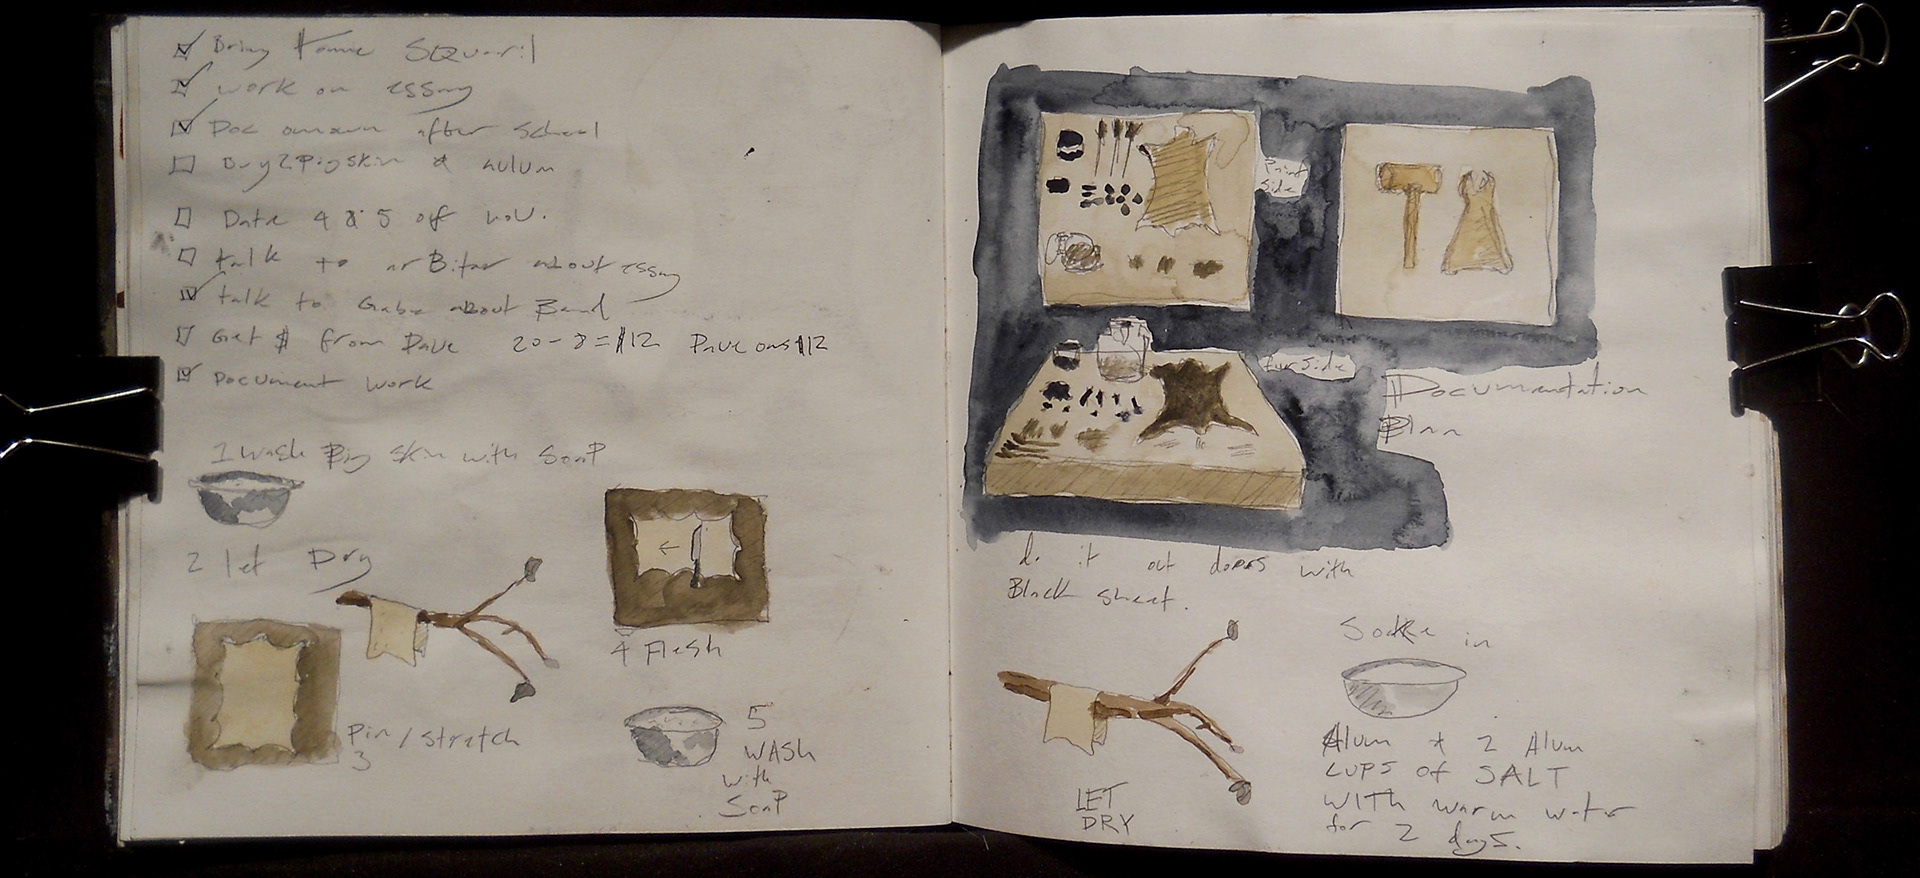 Bring Home SQuaril
work on essay
Doc after School
Buy 2 Pigskin &
Date 4 & 5 of nov.
talk to about essay
talk to Gabe about Band
Get $ from Dave 20-8=$12 Dave ows $12
Document work
1 Wash Pig skin with SoaP
2 let Dry
Pin / stretch
3
4 Flesh
5
WASH
with
SoaP
Print
side
fur side
Documentation
Plan
do it out doors with
Black sheet.
LET
DRY
Soake in
Alum & 2 Alum
cups of SALT
WITH warm water
for 2 days.